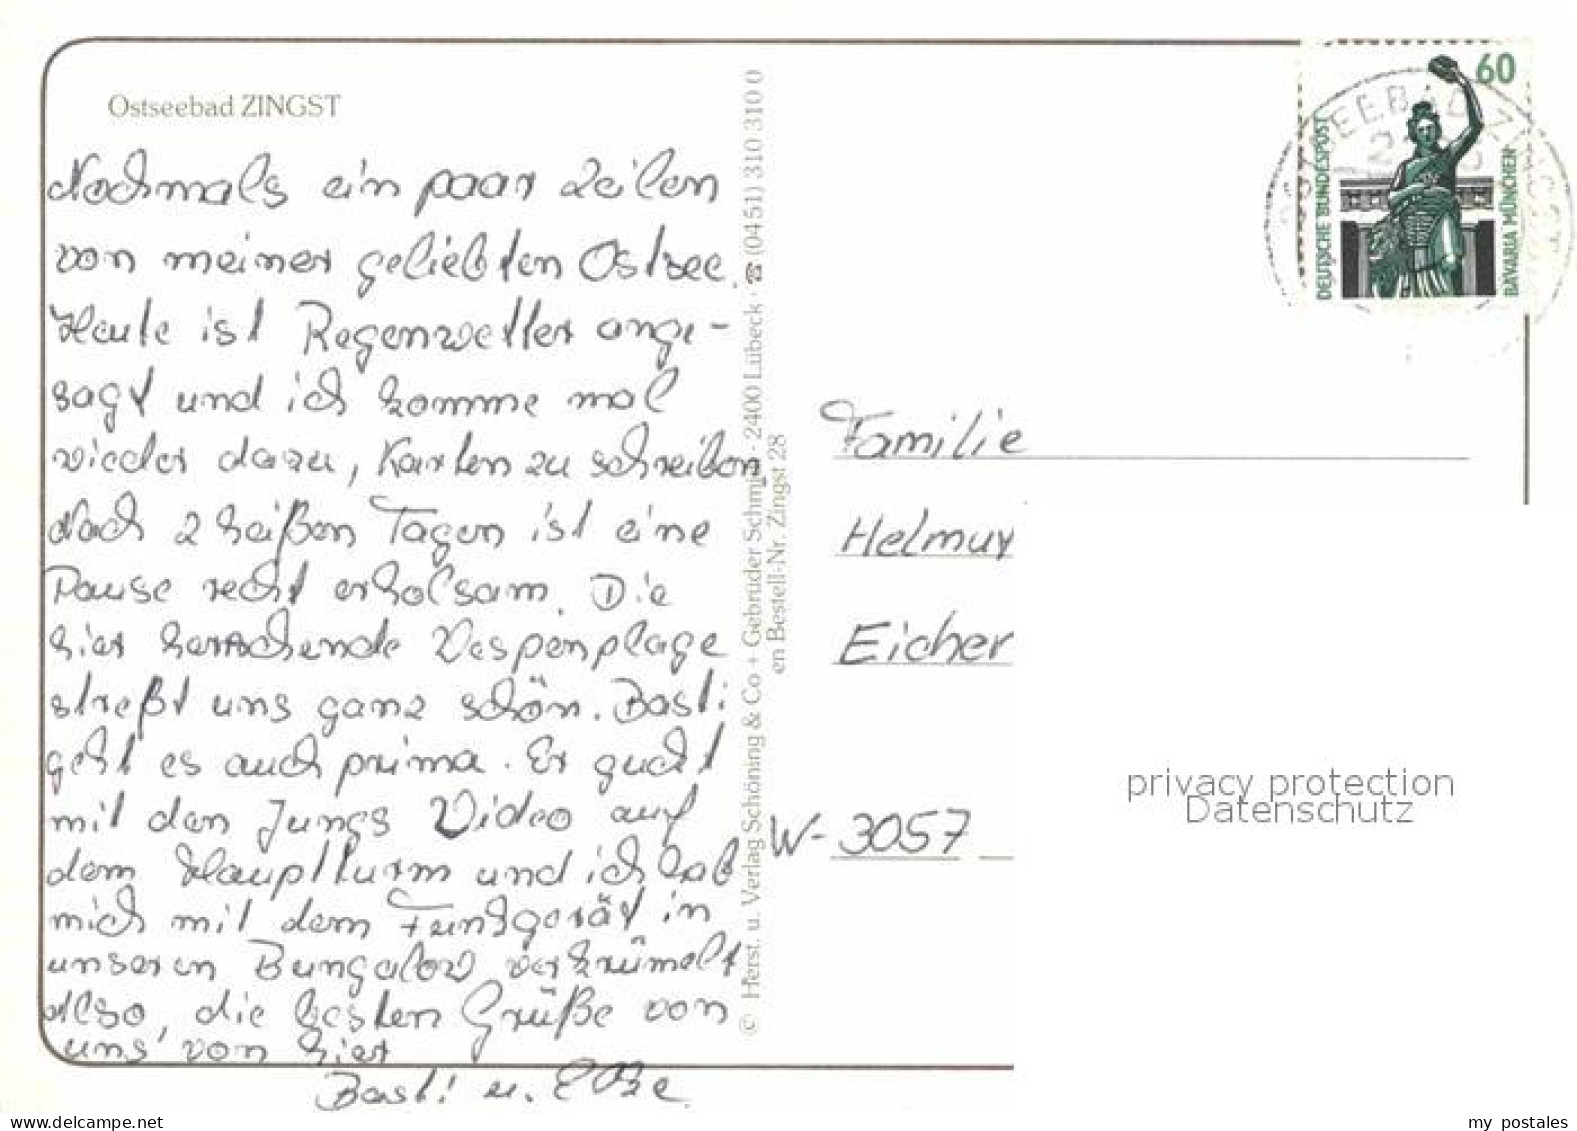 Ostseebad ZINGST
Nochmals ein paar Zeilen
von meiner geliebten Ostsee.
Heute ist Regenwetter ange-
sagt und ich komme mal
wieder dazu, Karten zu schreiben
Nach 2 heißen Tagen ist eine
Pause recht erholsam. Die
hier herrschende Wespenplage
streßt uns ganz schön. Basti
geht es auch prima. Er guckt
mit den Jungs Video auf
dem Hauptturm und ich hab
mich mit dem Funkgerät in
unseren Bungalow verkrümelt
also, die besten Grüße von
uns von hier
Basti u.
© Herst. u. Verlag Schöning & Co + Gebrüder Schmidt · 2400 Lübeck · ☎ (0451) 310 310 0
en Bestell-Nr. Zingst 28
60
DEUTSCHE BUNDESPOST
BAVARIA MÜNCHEN
OSTSEEBAD ZINGST
Familie
Helmut
Eicher
W-3057
privacy protection
Datenschutz
www.delcampe.net
my_postales